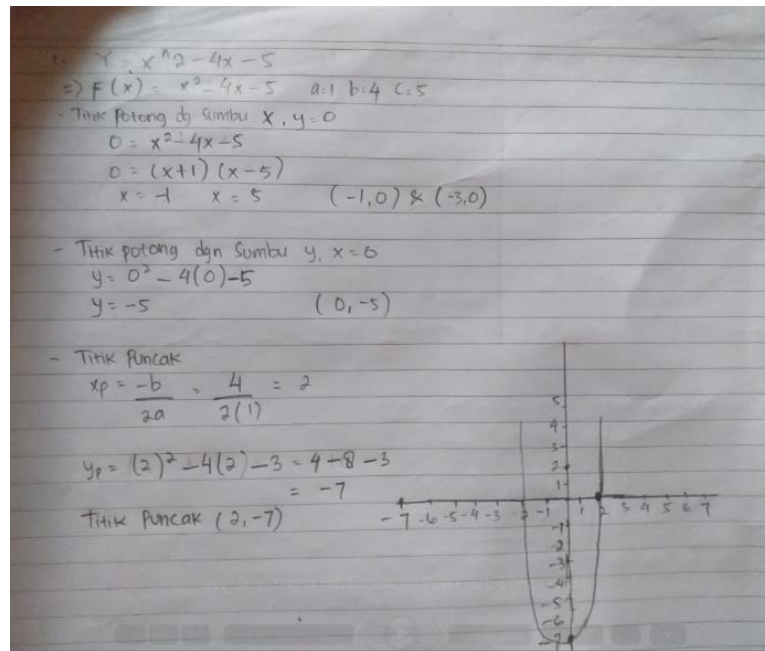 1. Y = x^2 - 4x - 5
=> F(x) = x² - 4x - 5 a=1 b=4 c=5
- Titik Potong dg Sumbu X, y=0
0 = x² - 4x - 5
0 = (x+1) (x-5)
x = -1 x = 5 (-1,0) & (-3,0)
- Titik potong dgn Sumbu y, x=0
y = 0² - 4(0) - 5
y = -5 (0,-5)
- Titik Puncak
xp = -b/2a = 4/2(1) = 2
yp = (2)² - 4(2) - 3 = 4 + 8 - 3
= -7
Titik Puncak (2,-7)
5
4
3
2
1
-7 -6 -5 -4 -3 -2 -1 1 2 3 4 5 6 7
-1
-2
-3
-4
-5
-6
-7